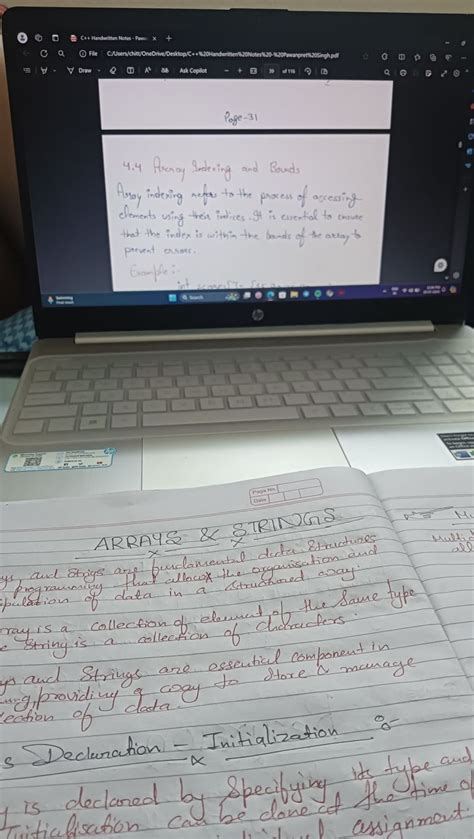 C++ Handwritten Notes - Pawan
File C:/Users/chitt/OneDrive/Desktop/C++%20Handwritten%20Notes%20-%20Pawanpreet%20Singh.pdf
Draw Ask Copilot 39 of 115
Page-31
4.4 Array Indexing and Bounds
Array indexing refers to the process of accessing
elements using their indices. It is essential to ensure
that the index is within the bounds of the array to
prevent errors.
Example:-
Search
hp
Page No.
Date
ARRAYS & STRINGS
ys, and strigs are fundamental data structures
programming that allows the organisation and
ipulation of data in a structured way.
rray is a collection of element of the same type
String is a collection of characters.
ys and Strings are essential component in
ing, providing a way to store & manage
lection of data.
s Declaration - Initialization :-
y is declared by specifying its type and
Initialisation can be done at the time of
assignment